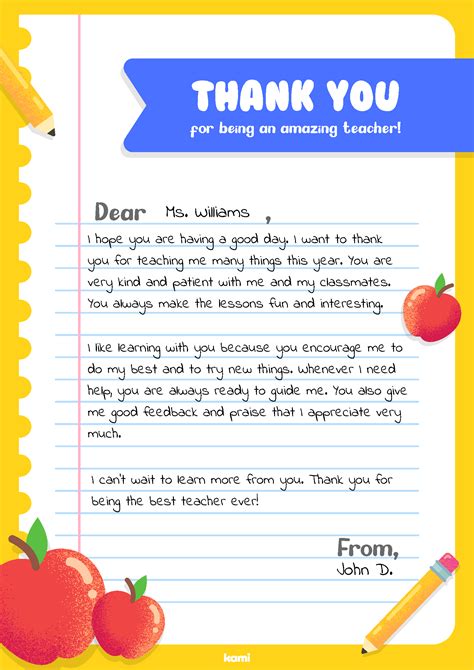 THANK YOU
for being an amazing teacher!
Dear Ms. Williams,
I hope you are having a good day. I want to thank
you for teaching me many things this year. You are
very kind and patient with me and my classmates.
You always make the lessons fun and interesting.
I like learning with you because you encourage me to
do my best and to try new things. Whenever I need
help, you are always ready to guide me. You also give
me good feedback and praise that I appreciate very
much.
I can't wait to learn more from you. Thank you for
being the best teacher ever!
From,
John D.
kami